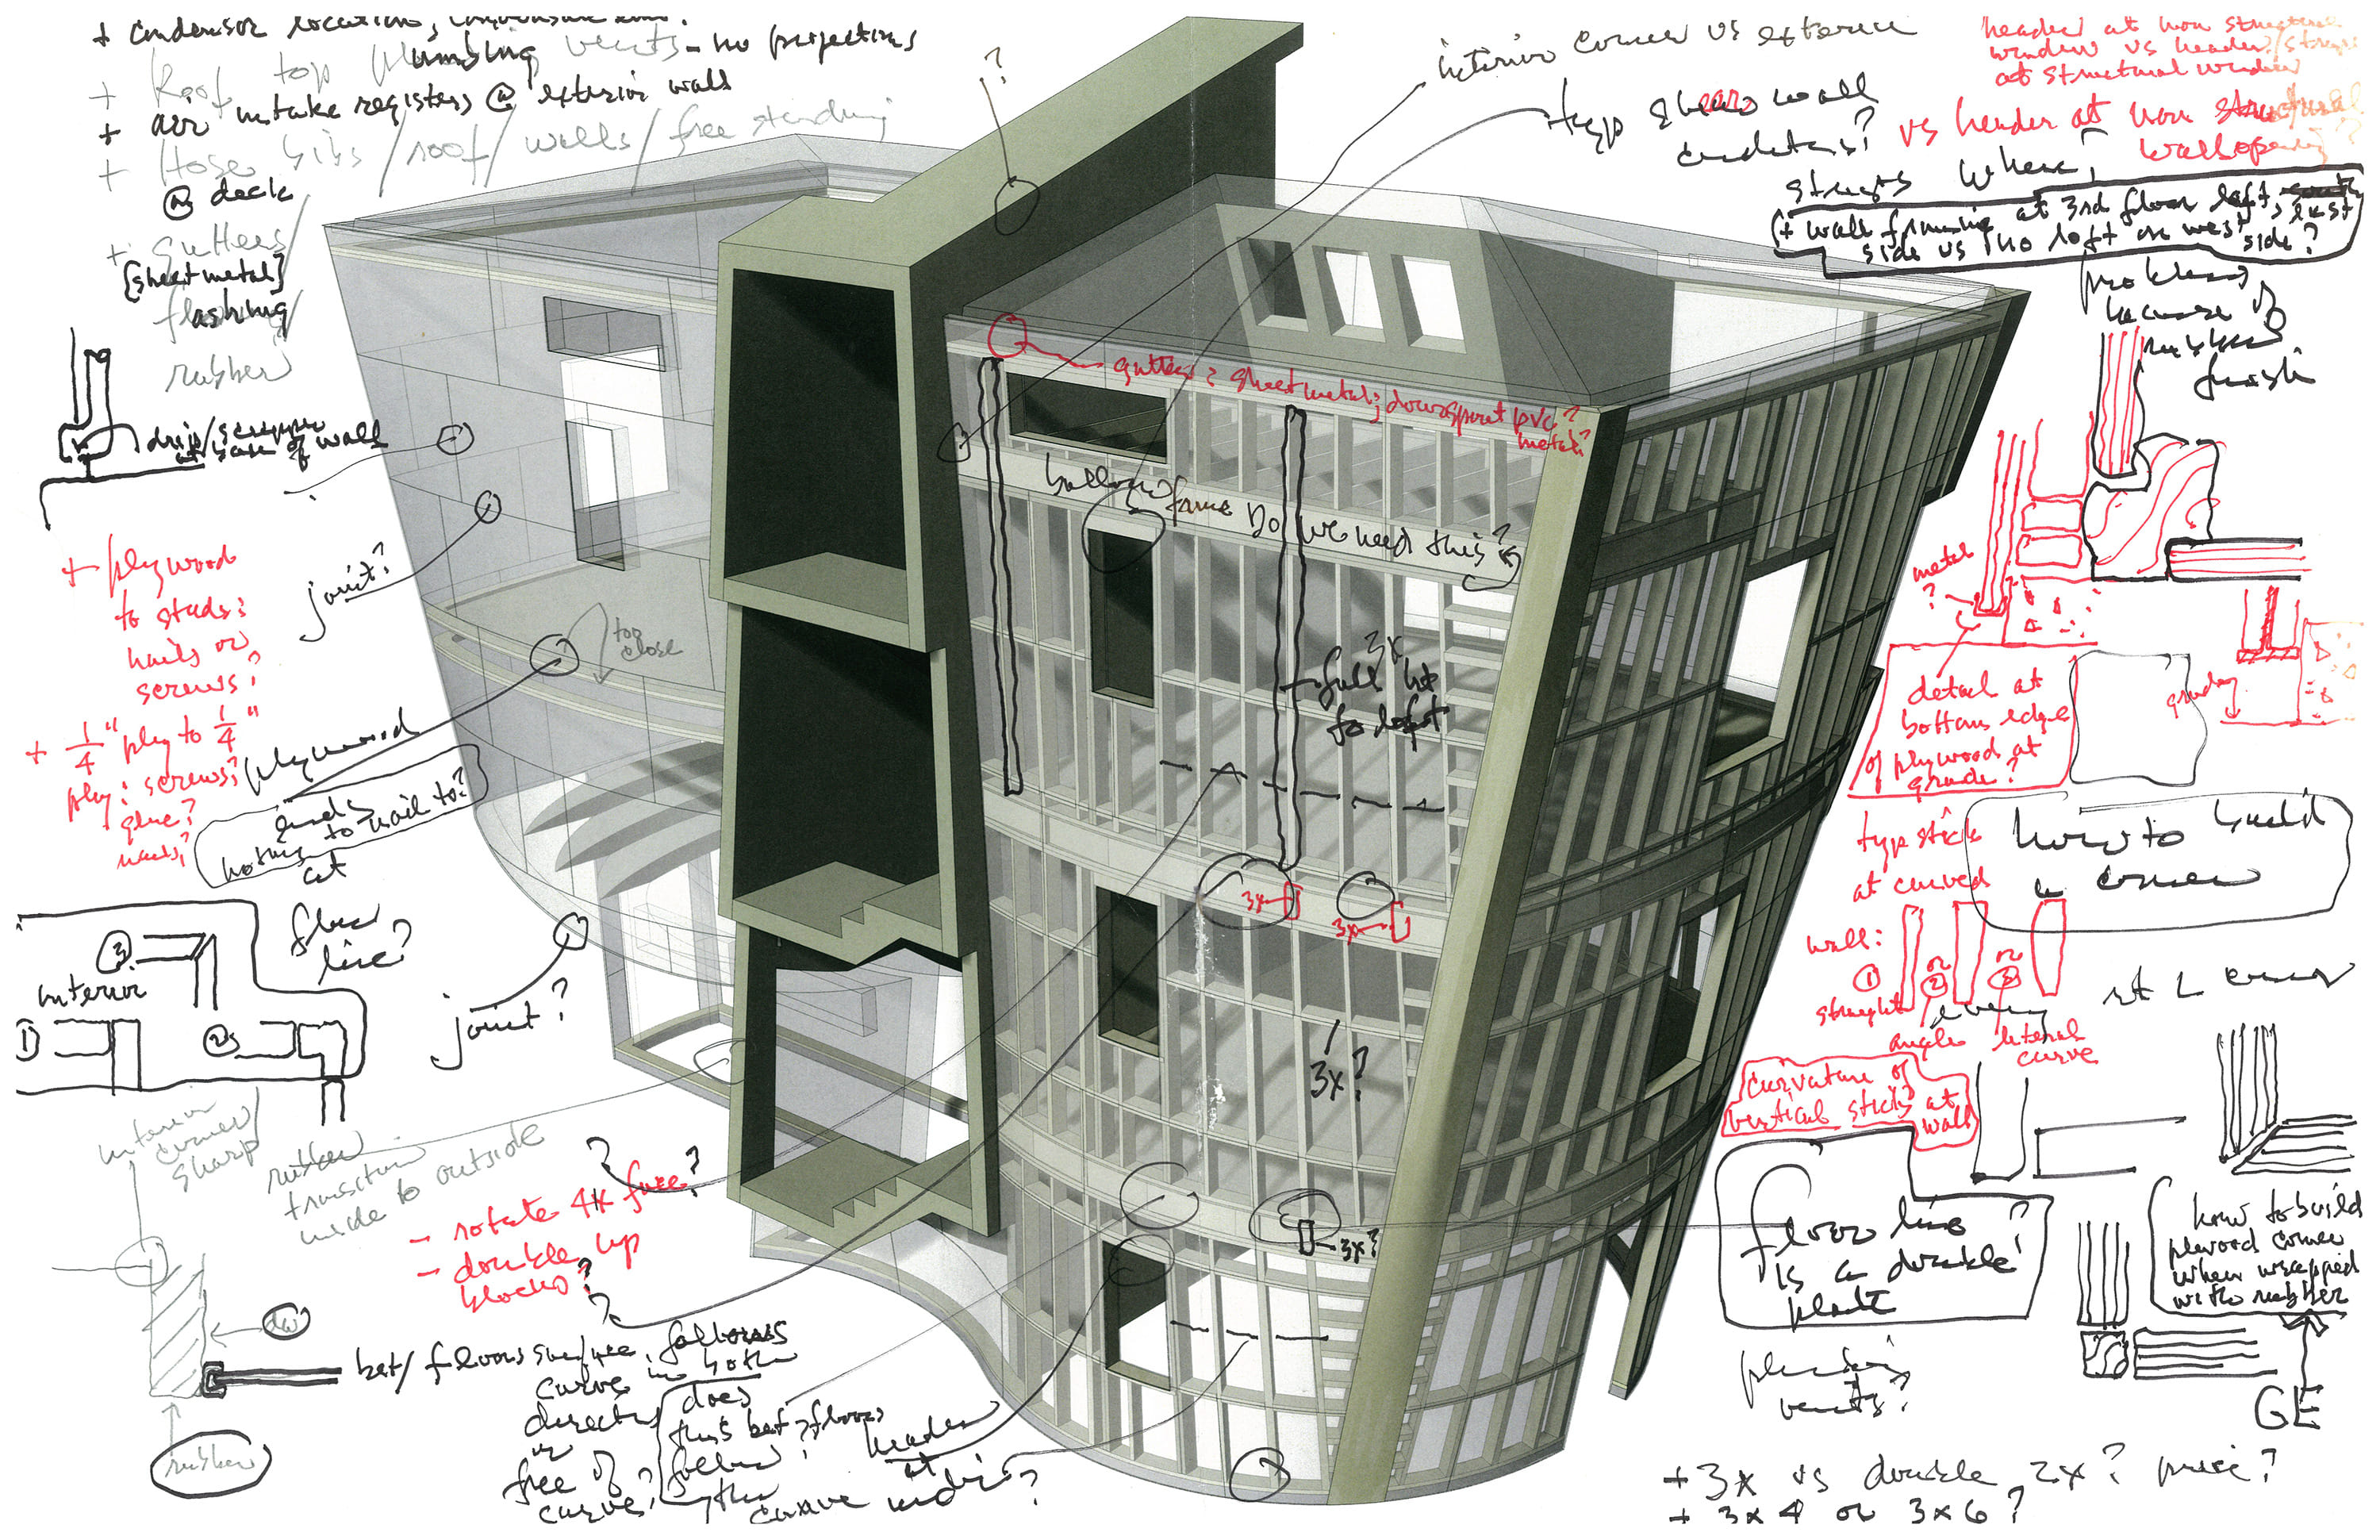 + condensor location,
+ Roof top plumbing vents - no projections
+ air intake registers @ exterior wall
+ Hose bibs / roof / walls / free standing
@ deck
+ gutters /
[sheet metal]
flashing
rubber
drip/screed
at base of wall
joint?
+ plywood
to studs:
nails or
screws?
+ 1/4" ply to 1/4"
ply: screws?
glue?
nails?
plywood
ends
nothing to nail to?
at
floor
line?
3
interior
1
2
joint?
interior
corner/
sharp
rubber
transition
inside to outside
?
- rotate 4x face?
- double up
blocks?
?
dw
rubber
bet/ floors surface follows
curve in both
directions
or
free of
curve?
does
this bet floors
follow?
the
curve
header
at
?
?
interior corner vs exterior
typ shear wall
conditions?
header at non structural
window vs header/
at structural window
vs header at non structural
wall opening?
straps where?
+ wall framing at 3rd floor loft, east
side vs no loft on west side?
problems
because of
rubber
finish
gutter: sheet metal; downspout pvc?
metal?
balloon frame
Do we need this?
too
close
3x
full ht
to loft
3x
3x
3x?
3x?
metal
?
detail at
bottom edge
of plywood at
grade?
grade
typ stick
at curved
wall:
1
straight
or
2
angle
or
3
literal
curve
how to build
a corner
rt L corner
curvature of
vertical sticks at
wall
floor line
is a double
plate
?
how to build
plywood corner
when wrapped
with rubber
plumbing
vents?
GE
+ 3x vs double 2x? price?
+ 3x4 or 3x6?